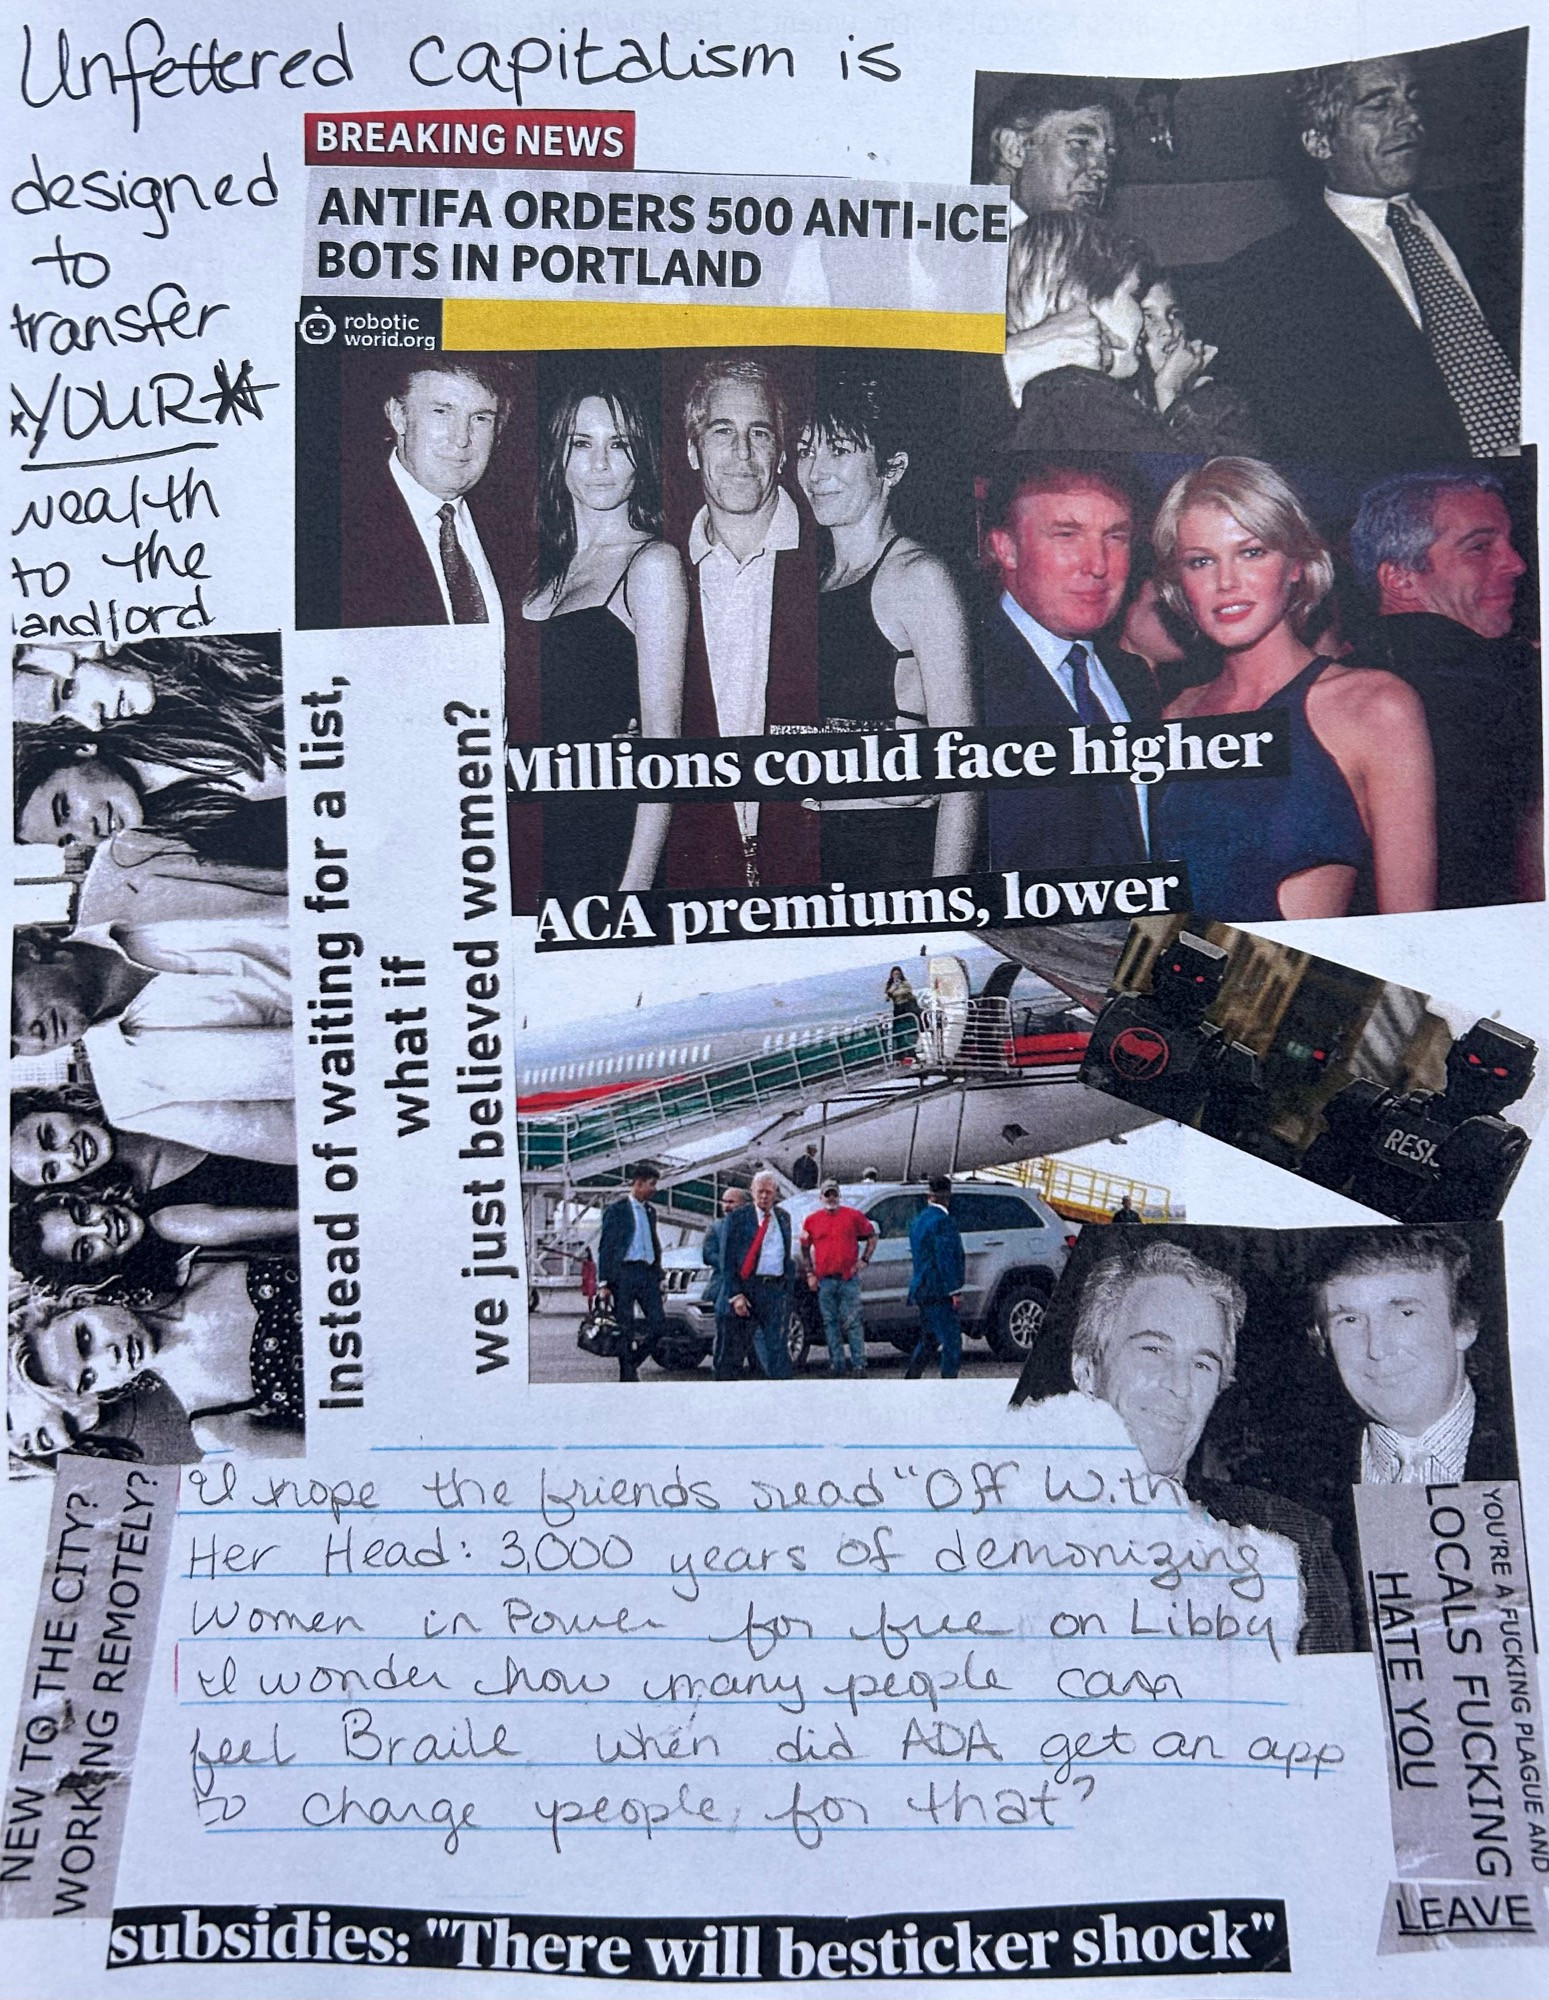 Unfettered capitalism is
designed
to
transfer
*YOUR*
wealth
to the
landlord
BREAKING NEWS
ANTIFA ORDERS 500 ANTI-ICE
BOTS IN PORTLAND
robotic
world.org
Millions could face higher
ACA premiums, lower
Instead of waiting for a list,
what if
we just believed women?
RESI
I hope the friends read "Off With
Her Head: 3,000 years of demonizing
Women in Power for free on Libby
I wonder how many people can
feel Braile when did ADA get an app
to charge people for that?
NEW TO THE CITY?
WORKING REMOTELY?
YOU'RE A FUCKING PLAGUE AND
LOCALS FUCKING
HATE YOU
LEAVE
subsidies: "There will besticker shock"